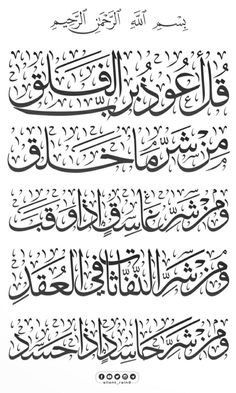 بِسْمِ ٱللَّهِ ٱلرَّحْمَٰنِ ٱلرَّحِيمِ
قُلْ أَعُوذُ بِرَبِّ الْفَلَقِ
مِنْ شَرِّ مَا خَلَقَ
وَمِنْ شَرِّ غَاسِقٍ إِذَا وَقَبَ
وَمِنْ شَرِّ النَّفَّاثَاتِ فِي الْعُقَدِ
وَمِنْ شَرِّ حَاسِدٍ إِذَا حَسَدَ